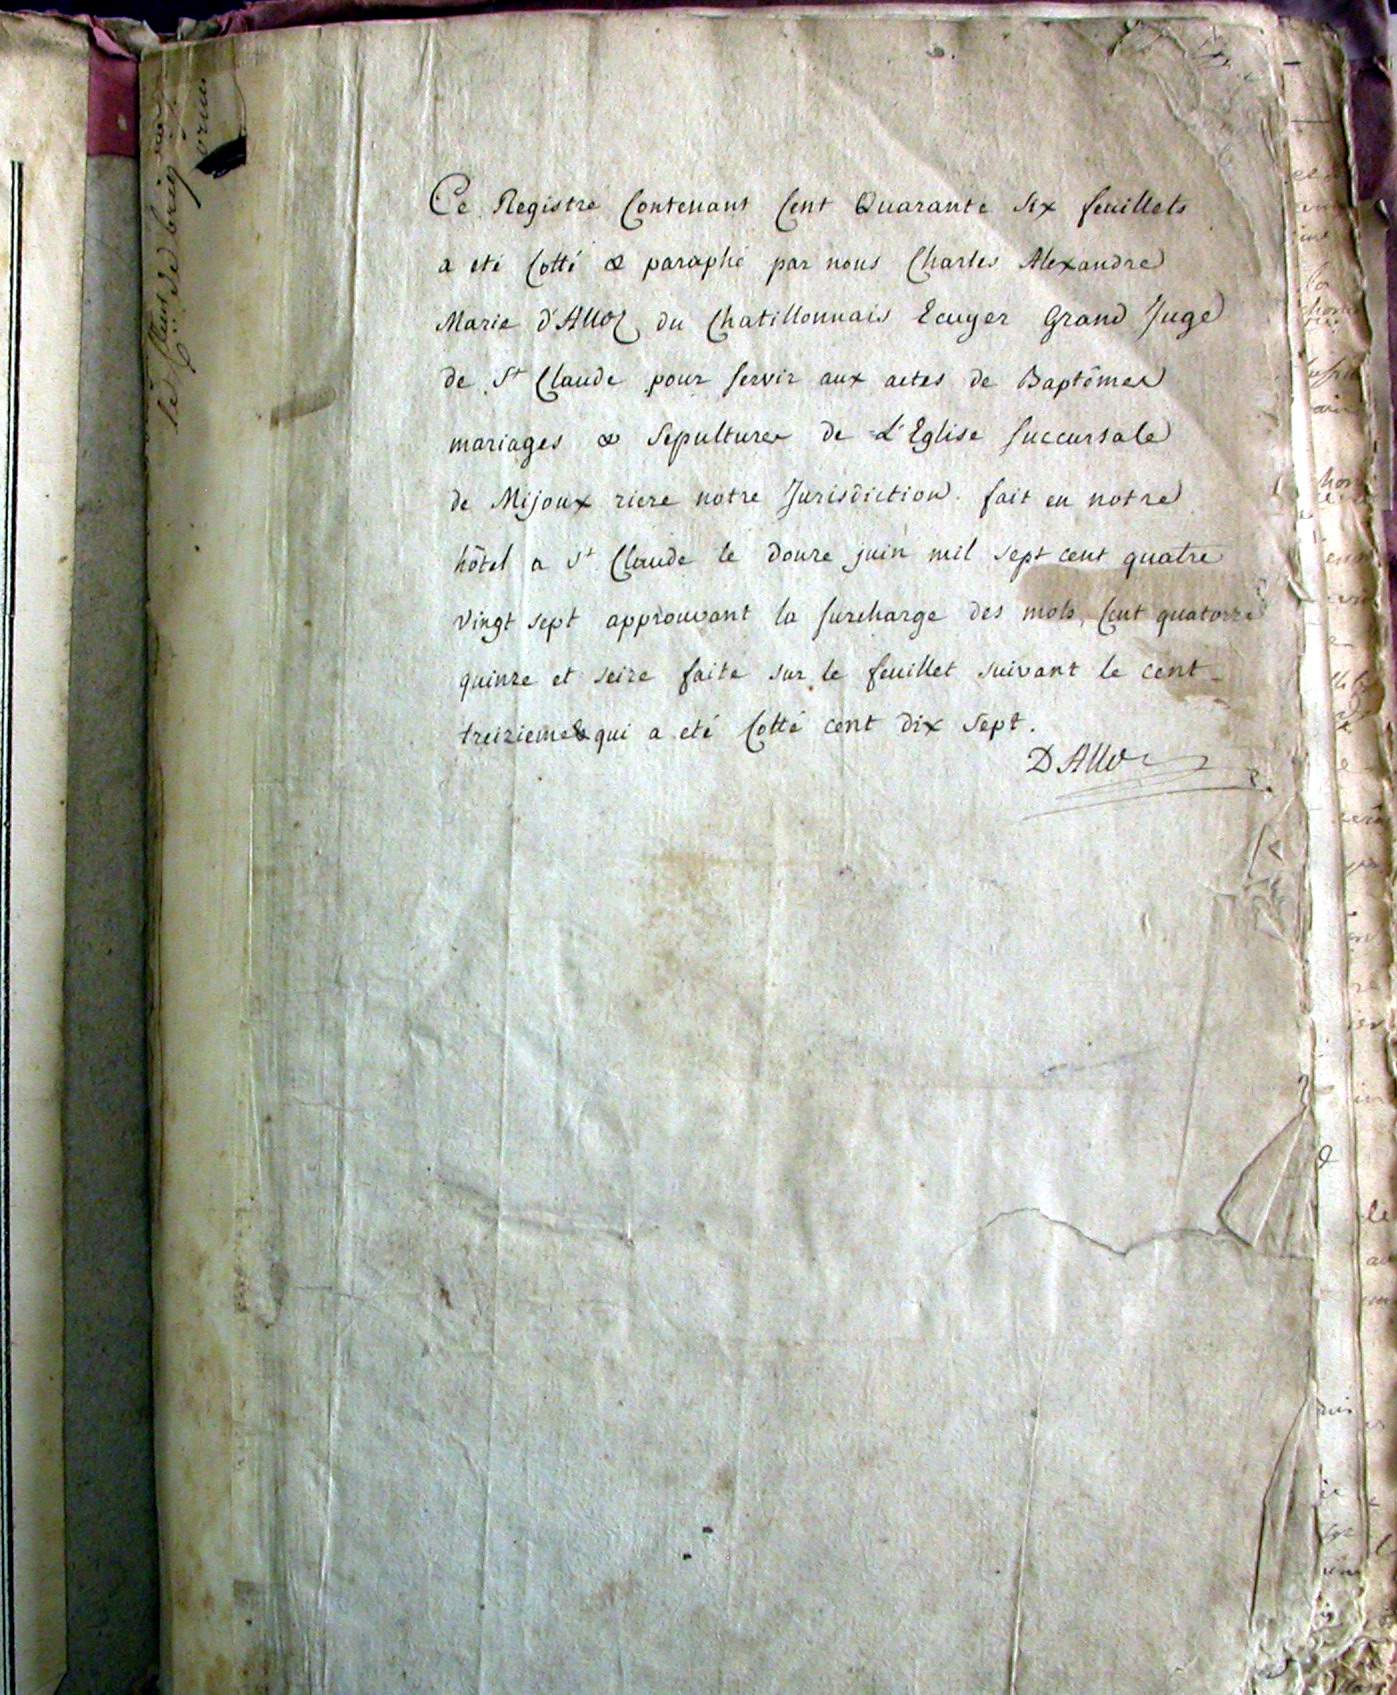 Ce Registre Contenant Cent Quarante Six feuillets
a eté Cotté & paraphé par nous Charles Alexandre
Marie d'Alloz du Chatillonnais Ecuyer Grand Juge
de St Claude pour Servir aux actes de Baptêmes
mariages & Sepultures de L'Eglise Succursale
de Mijoux riere notre Jurisdiction. fait en notre
hôtel a St Claude le douze juin mil sept cent quatre
vingt sept approuvant la surcharge des mots, Cent quatorze
quinze et seize faite sur le feuillet suivant le cent
treizieme & qui a eté Cotté cent dix sept.
D'Alloz